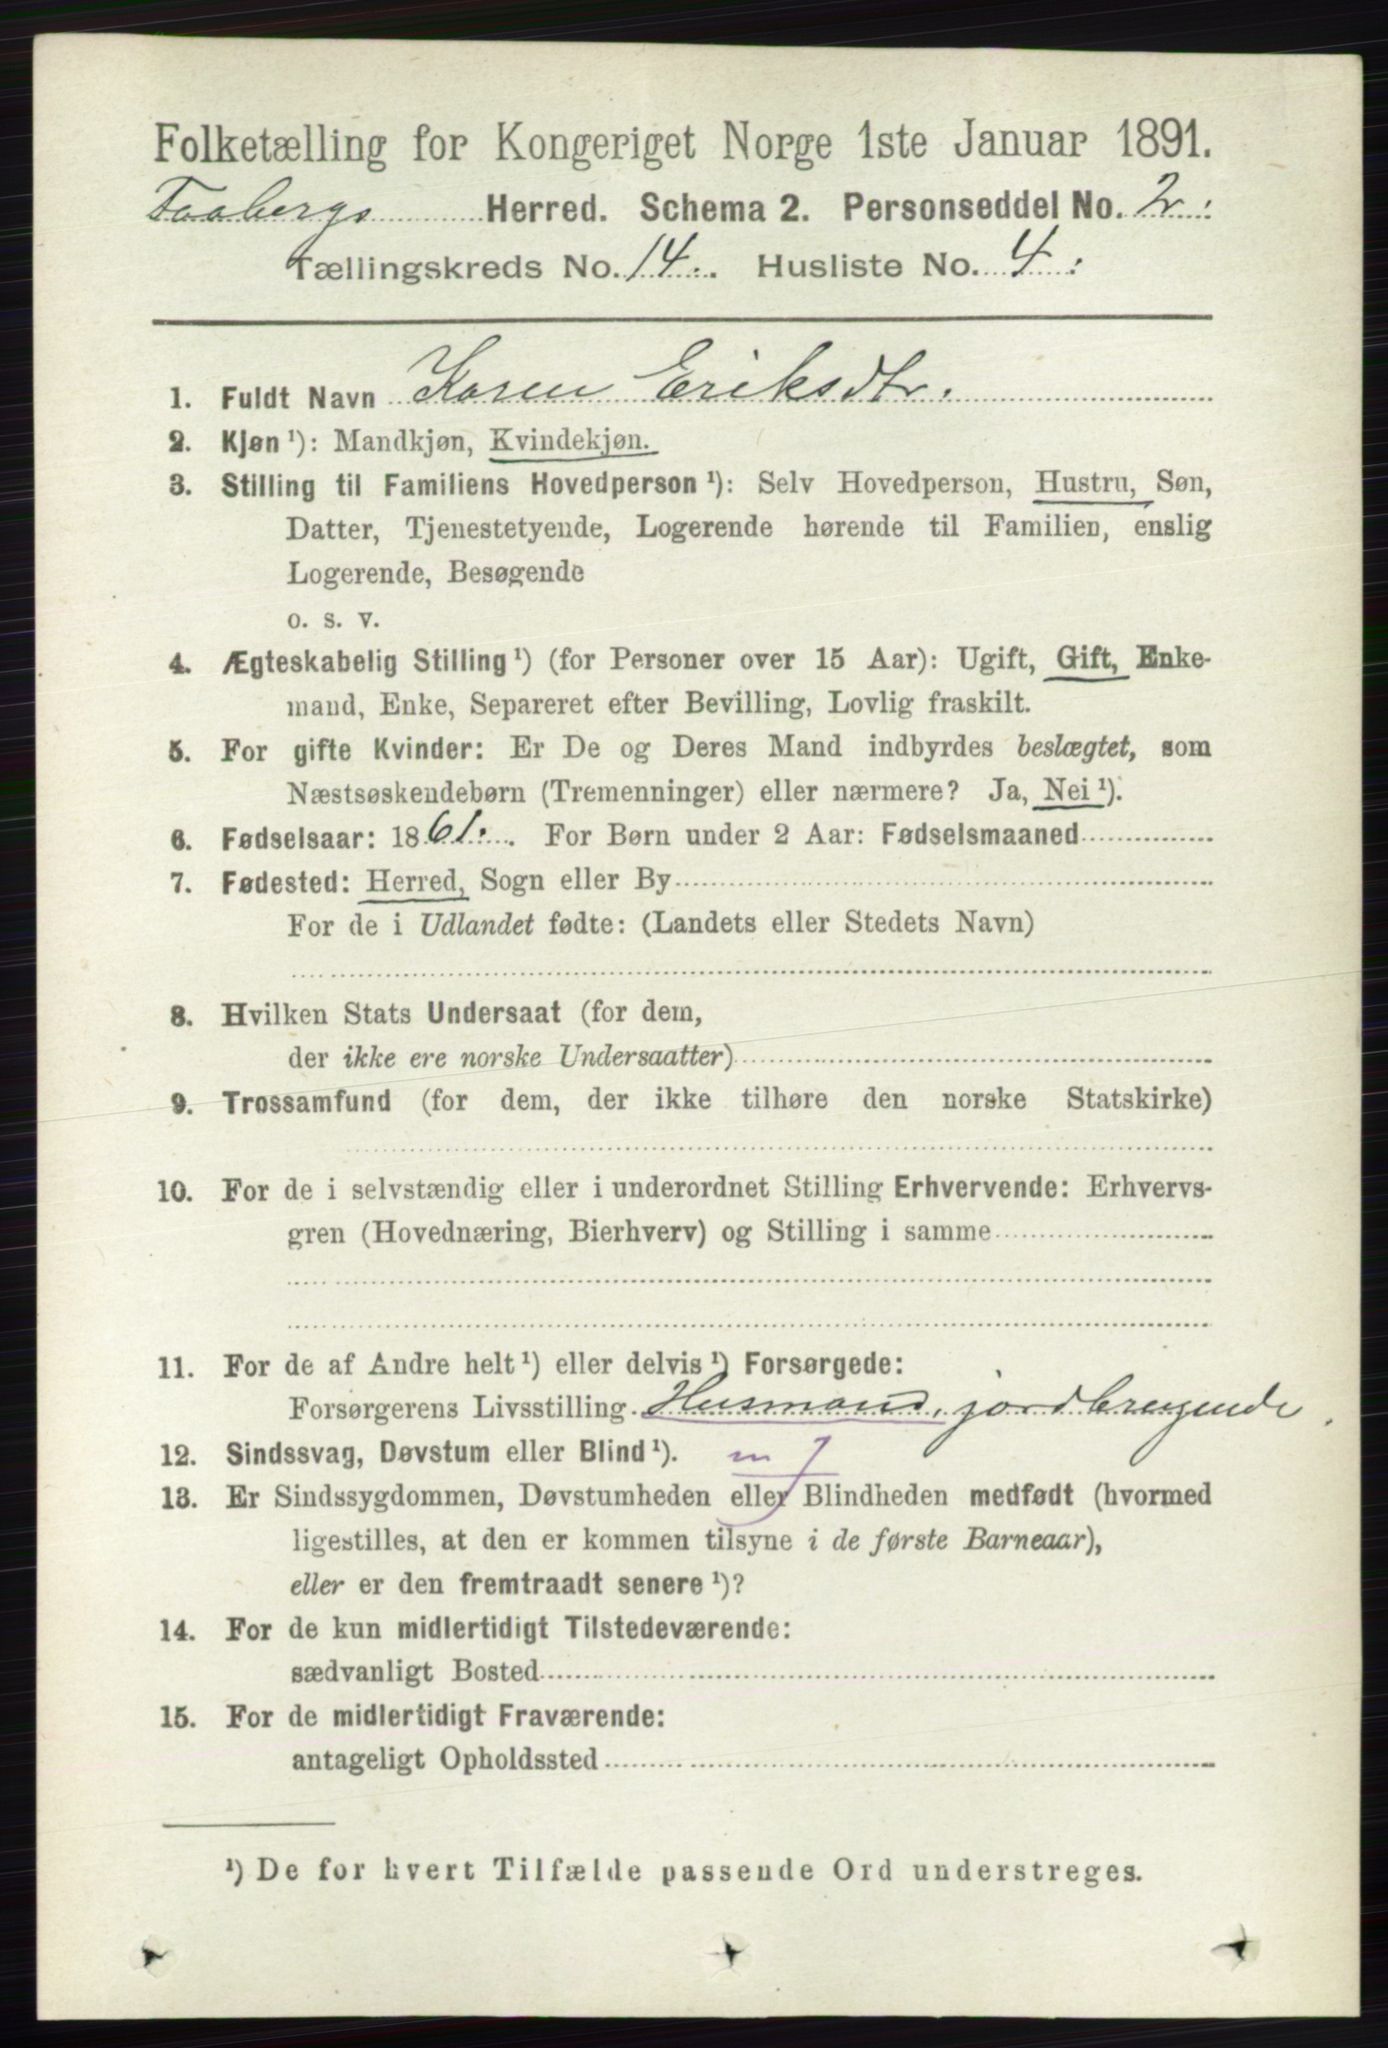 Folketælling for Kongeriget Norge 1ste Januar 1891.
Faabergs Herred. Schema 2. Personseddel No. 2.
Tællingskreds No. 14. Husliste No. 4.
1. Fuldt Navn Karen Eriksdtr.
2. Kjøn ¹): Mandkjøn, Kvindekjøn.
3. Stilling til Familiens Hovedperson ¹): Selv Hovedperson, Hustru, Søn,
Datter, Tjenestetyende, Logerende hørende til Familien, enslig
Logerende, Besøgende
o. s. v.
4. Ægteskabelig Stilling ¹) (for Personer over 15 Aar): Ugift, Gift, Enke-
mand, Enke, Separeret efter Bevilling, Lovlig fraskilt.
5. For gifte Kvinder: Er De og Deres Mand indbyrdes beslægtet, som
Næstsøskendebørn (Tremenninger) eller nærmere? Ja, Nei ¹).
6. Fødselsaar: 1861. For Børn under 2 Aar: Fødselsmaaned
7. Fødested: Herred, Sogn eller By
For de i Udlandet fødte: (Landets eller Stedets Navn)
8. Hvilken Stats Undersaat (for dem,
der ikke ere norske Undersaatter)
9. Trossamfund (for dem, der ikke tilhøre den norske Statskirke)
10. For de i selvstændig eller i underordnet Stilling Erhvervende: Erhvervs-
gren (Hovednæring, Bierhverv) og Stilling i samme
11. For de af Andre helt ¹) eller delvis ¹) Forsørgede:
Forsørgerens Livsstilling Husmand, jordbrugende
12. Sindssvag, Døvstum eller Blind ¹). m J
13. Er Sindssygdommen, Døvstumheden eller Blindheden medfødt (hvormed
ligestilles, at den er kommen tilsyne i de første Barneaar),
eller er den fremtraadt senere ¹)?
14. For de kun midlertidigt Tilstedeværende:
sædvanligt Bosted
15. For de midlertidigt Fraværende:
antageligt Opholdssted
¹) De for hvert Tilfælde passende Ord understreges.